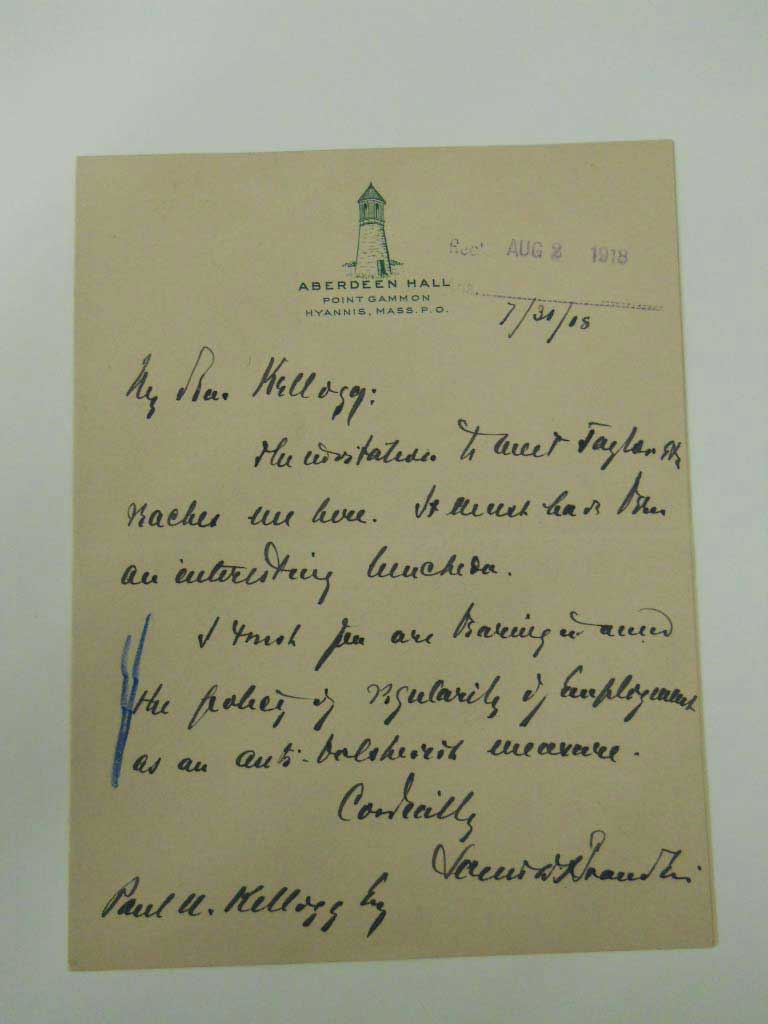 Rec' AUG 2 1918
ABERDEEN HALL
POINT GAMMON
HYANNIS, MASS. P.O.
7/31/18
My dear Kellogg:
The invitation to meet Taylor
reaches me here. It must have been
an interesting luncheon.
I trust you are bearing in mind
the policy of regularity of employment
as an anti-bolshevist measure.
Cordially
Louis D Brandeis
Paul U. Kellogg Esq